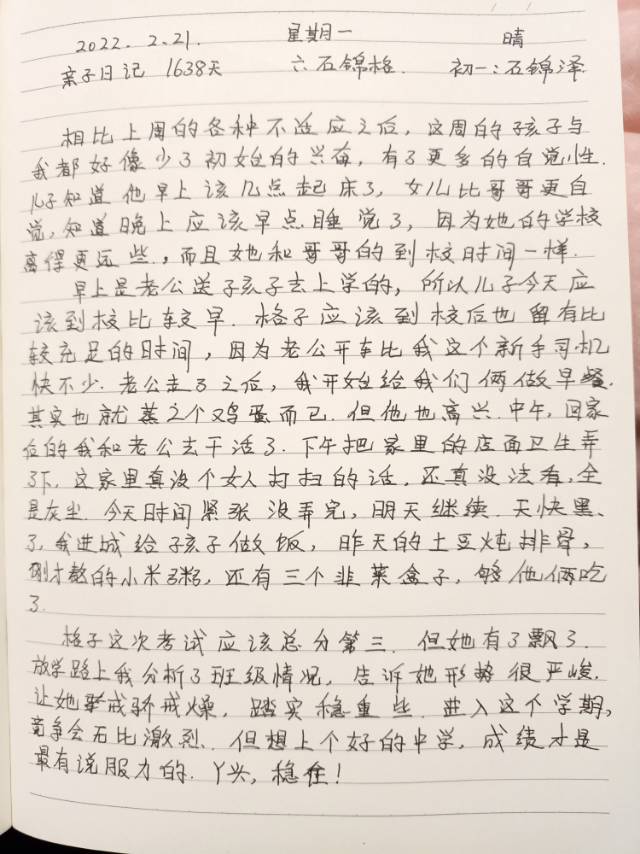 2022. 2.21. 星期一 晴
亲子日记 1638天 六石锦格. 初一:石锦泽.
相比上周的各种不适应之后, 这周的孩子与
我都好像少了初始的兴奋, 有了更多的自觉性.
儿子知道他早上该几点起床了, 女儿比哥哥更自
觉, 知道晚上应该早点睡觉了, 因为她的学校
离得更远些, 而且她和哥哥的到校时间一样.
早上是老公送子孩子去上学的, 所以儿子今天应
该到校比较早. 格子应该到校后也留有比
较充足的时间, 因为老公开车比我这个新手司机
快不少. 老公走了之后, 我开始给我们俩做早餐.
其实也就蒸了个鸡蛋而已. 但他也高兴. 中午, 回家
后的我和老公去干活了. 下午把家里的店面卫生弄
了下, 这家里真没个女人打扫的话, 还真没法看, 全
是灰尘. 今天时间紧张 没弄完, 明天继续. 天快黑
了, 我进城给孩子做饭, 昨天的土豆炖排骨,
刚才熬的小米粥, 还有三个韭菜盒子, 够他俩吃
了.
格子这次考试应该总分第三. 但她有了飘了.
放学路上我分析了班级情况, 告诉她形势很严峻.
让她戒骄戒燥, 踏实稳重些. 进入这个学期,
竞争会无比激烈. 但想上个好的中学, 成绩才是
最有说服力的. 丫头, 稳住!